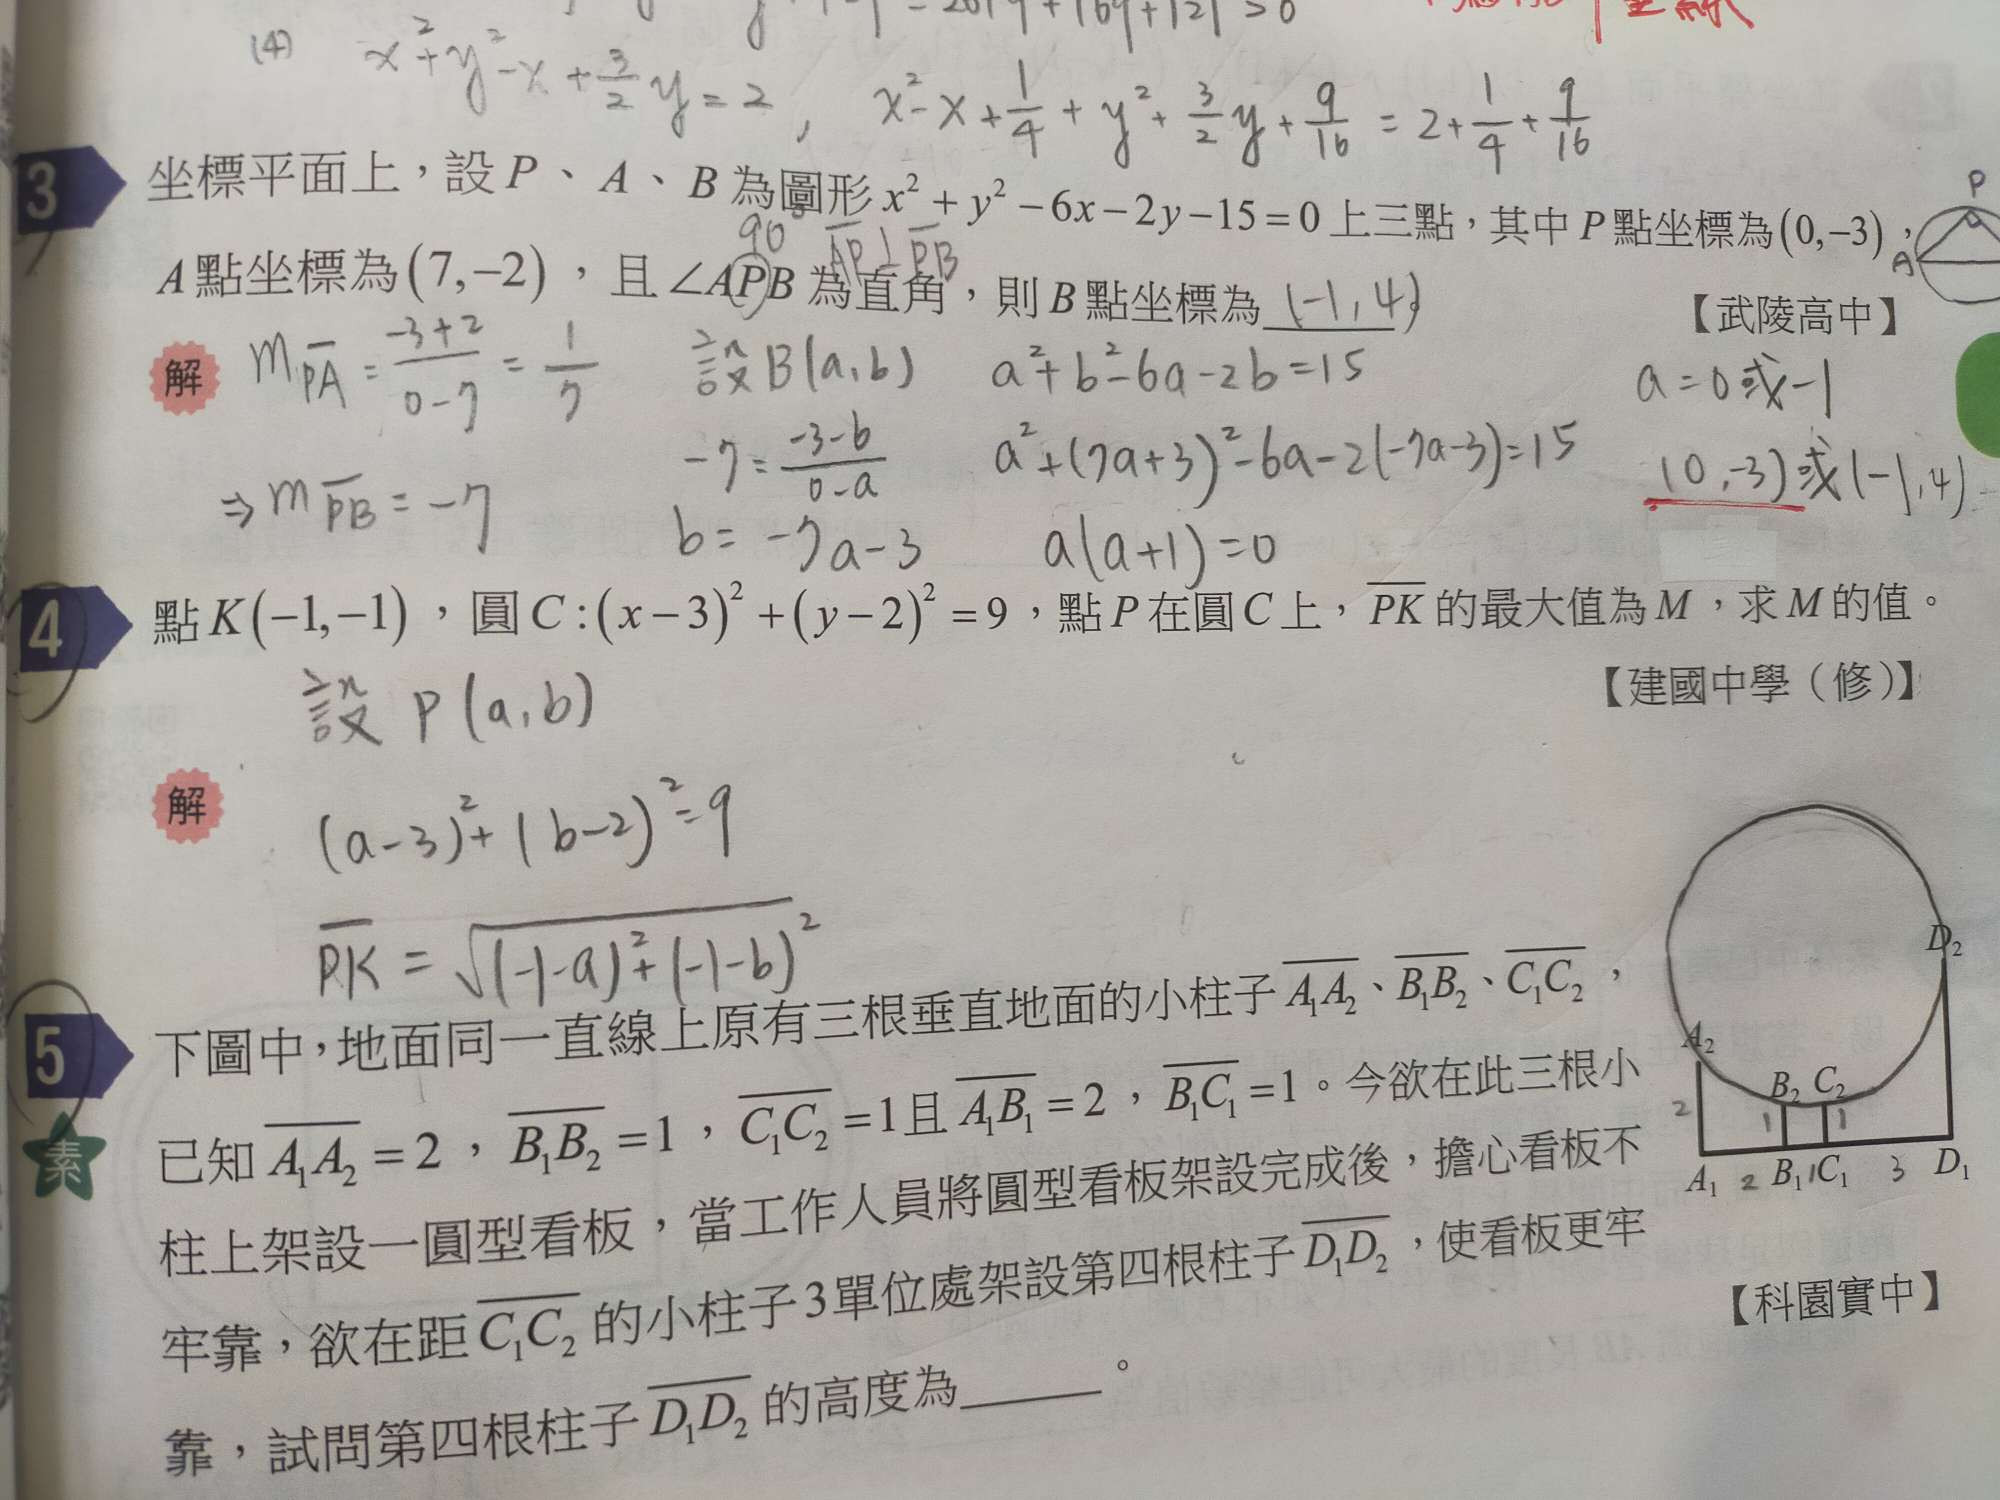 (4) x²+y²-x+3/2y=2, x²-x+1/4+y²+3/2y+9/16=2+1/4+9/16
3 坐標平面上，設P、A、B為圖形x²+y²-6x-2y-15=0上三點，其中P點坐標為(0,-3)，
90° AP⊥PB
A點坐標為(7,-2)，且∠APB為直角，則B點坐標為(-1,4)。
【武陵高中】
P
A
解 mPA=(-3+2)/(0-7)=1/7 設B(a,b) a²+b²-6a-2b=15 a=0或-1
⇒mPB=-7 -7=(-3-b)/(0-a) a²+(7a+3)²-6a-2(-7a-3)=15 (0,-3)或(-1,4)
b=-7a-3 a(a+1)=0
4 點K(-1,-1)，圓C:(x-3)²+(y-2)²=9，點P在圓C上，PK的最大值為M，求M的值。
【建國中學（修）】
設P(a,b)
解 (a-3)²+(b-2)²=9
PK=√(-1-a)²+(-1-b)²
5 下圖中，地面同一直線上原有三根垂直地面的小柱子A₁A₂、B₁B₂、C₁C₂，
素 已知A₁A₂=2，B₁B₂=1，C₁C₂=1且A₁B₁=2，B₁C₁=1。今欲在此三根小
柱上架設一圓型看板，當工作人員將圓型看板架設完成後，擔心看板不
牢靠，欲在距C₁C₂的小柱子3單位處架設第四根柱子D₁D₂，使看板更牢
靠，試問第四根柱子D₁D₂的高度為______。
【科園實中】
D₂
A₂
B₂ C₂
2 1 1
A₁ 2 B₁ 1 C₁ 3 D₁